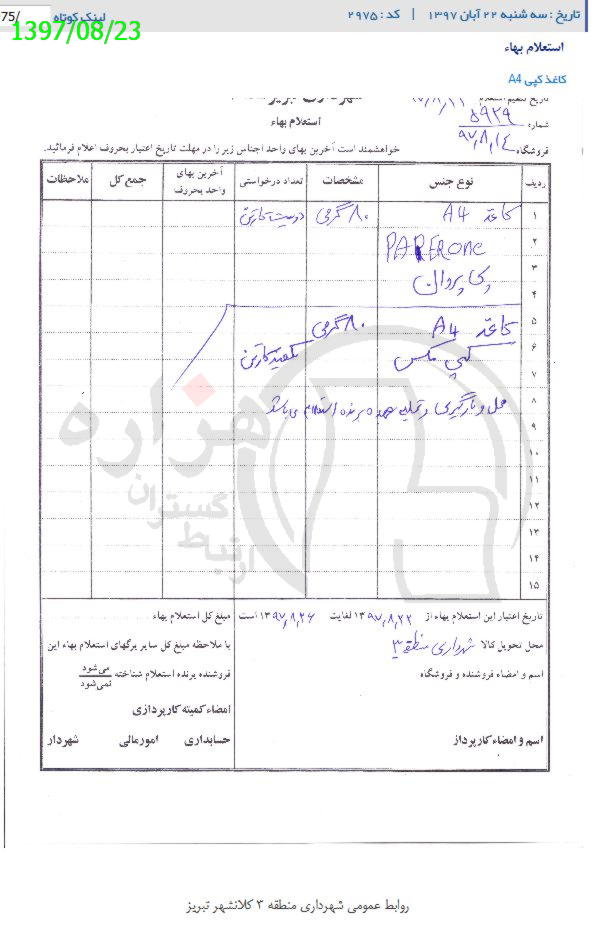 تاریخ : سه شنبه ۲۲ آبان ۱۳۹۷ | کد : ۲۹۷۵ لینک کوتاه 75/
1397/08/23
استعلام بهاء
کاغذ کپی A4
تاریخ تنظیم استعلام
استعلام بهاء
شماره ۵۹۲۹
فروشگاه ۹۷,۸,۱۴
خواهشمند است آخرین بهای واحد اجناس زیر را در مهلت تاریخ اعتبار بحروف اعلام فرمائید.
ردیف نوع جنس مشخصات تعداد درخواستی آخرین بهای واحد بحروف جمع کل ملاحظات
۱ کاغذ A4 ۸۰ گرمی دویست کارتن
۲ PAPERONE
۳ کپی پروان
۴
۵ کاغذ A4 ۸۰ گرمی
۶ کپی مکس یکصد کارتن
۷
۸ حمل و بارگیری و تخلیه به عهده برنده استعلام می باشد
۹
۱۰
۱۱
۱۲
۱۳
۱۴
۱۵
هزاره
گستران
ارتباط
تاریخ اعتبار این استعلام بهاء از ۹۷,۸,۲۲ ۱۳ لغایت ۹۷,۸,۲۶ ۱۳ است
محل تحویل کالا شهرداری منطقه ۳
اسم و امضاء فروشنده و فروشگاه
اسم و امضاء کارپرداز
مبلغ کل استعلام بهاء
با ملاحظه مبلغ کل سایر برگهای استعلام بهاء این
فروشنده برنده استعلام شناخته می شود
نمی شود
امضاء کمیته کارپردازی
حسابداری امورمالی شهردار
روابط عمومی شهرداری منطقه ۳ کلانشهر تبریز